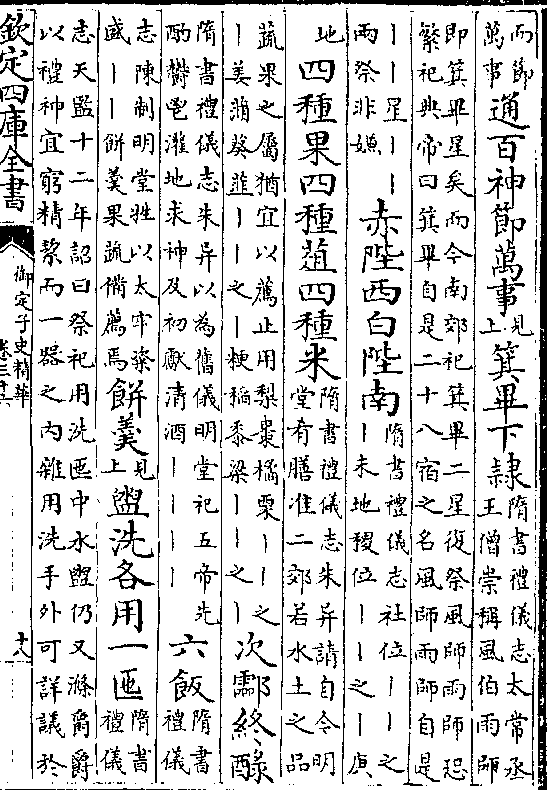 而節萬事通百神節萬事見上箕畢下隸隋書禮儀志太常丞王僧崇稱風伯雨師
即箕畢星矣而今南郊祀箕畢二星復祭風師雨師恐繁祀典帝曰箕畢自是二十八宿之名風師雨師自是
丨丨星丨丨雨祭非嫌赤陛西白陛南隋書禮儀志社位丨丨之丨未地稷位丨丨之丨庚
地四種果四種葅四種米隋書禮儀志朱异請自今明堂有膳准二郊若水土之品
蔬果之屬猶宜以薦止用梨棗橘栗丨丨之丨姜蒲葵韮丨丨之丨粳稻黍梁丨丨之丨次酃終醁
隋書禮儀志朱异以為舊儀明堂祀五帝先酌鬱鬯灌地求神及初獻清酒丨丨丨丨六飯隋書禮儀
志陳制明堂牲以太牢粢盛丨丨餅羹果蔬備薦焉餅羹見上盥洗各用一匜隋書禮儀
志天監十二年詔曰祭祀用洗匜中水盥仍又滌爵爵以禮神宜窮精潔而一器之内雜用洗手外可詳議於
欽定四庫全書
御定子史精華
卷三十六
十八